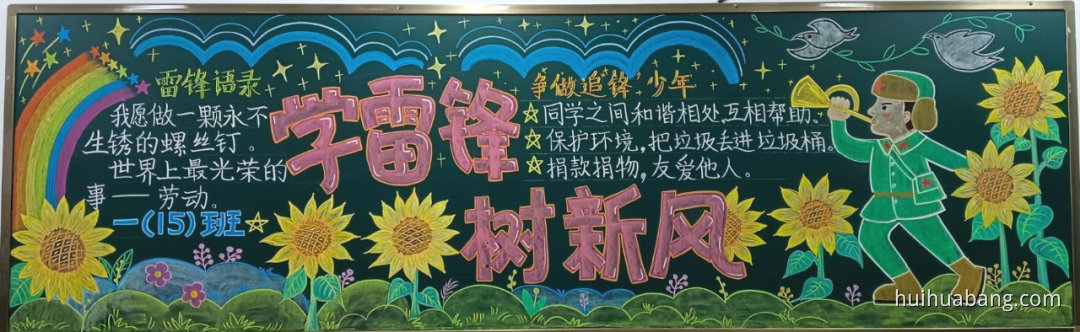 雷锋语录
我愿做一颗永不
生锈的螺丝钉。
世界上最光荣的
事——劳动。
一(15)班
学雷锋
树新风
争做追"锋"少年
☆同学之间和谐相处,互相帮助。
☆保护环境,把垃圾丢进垃圾桶。
☆捐款捐物,友爱他人。
huihuabang.com